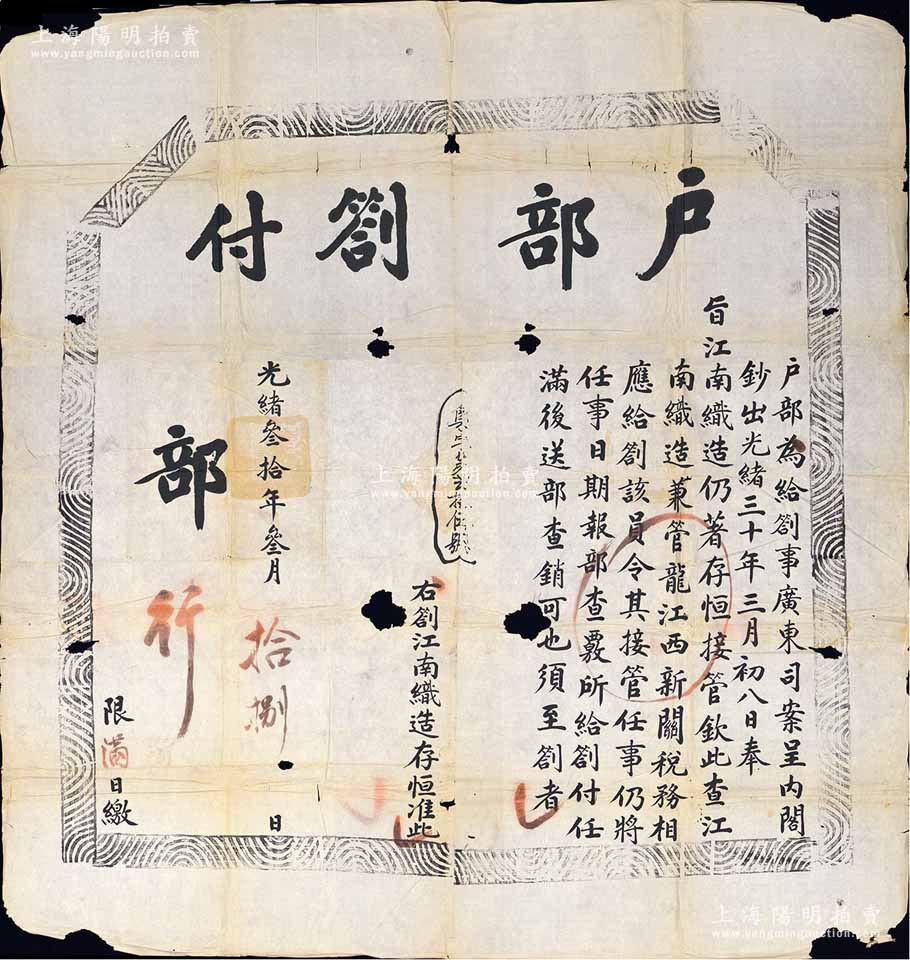 上海陽明拍賣
www.yangmingauction.com
户部劄付
户部為給劄事廣東司案呈内閣
鈔出光緒三十年三月初八日奉
旨江南織造仍著存恒接管欽此查江
南織造兼管龍江西新關稅務相
應給劄該員令其接管任事仍將
任事日期報部查覈所給劄付任
滿後送部查銷可也須至劄者
右劄江南織造存恒准此
光緒叁拾年叁月拾捌日
部行
限滿日繳
上海陽明拍賣
www.yangmingauction.com
上海陽明拍賣
www.yangmingauction.com